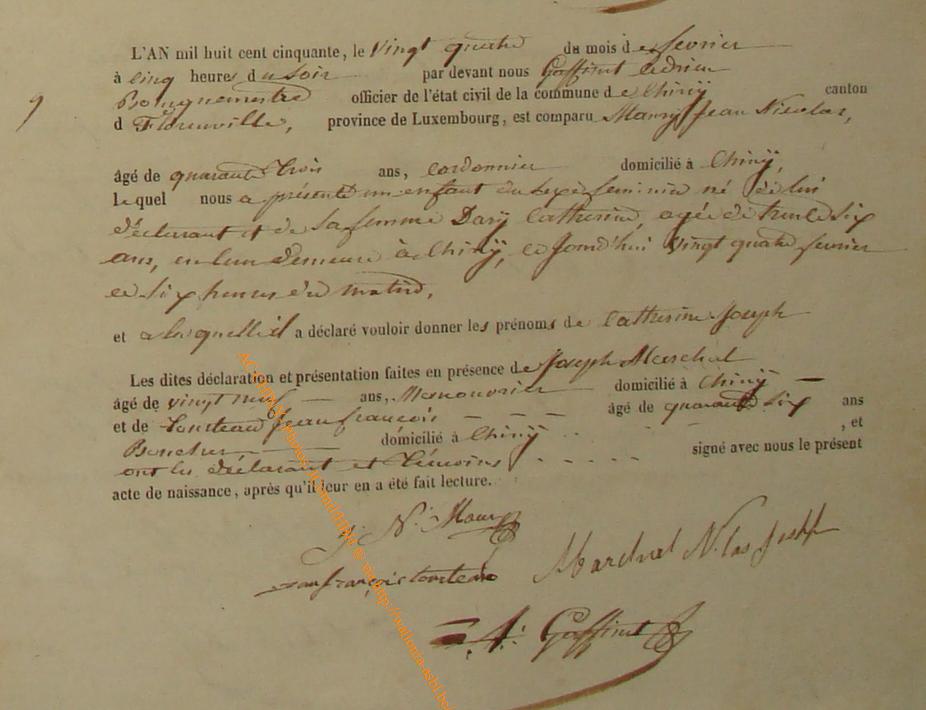 L'AN mil huit cent cinquante, le Vingt quatre du mois de fevrier
à cinq heures du soir par devant nous Goffinet Adrien
Bourguemestre officier de l'état civil de la commune de Chinÿ canton
9
d Florenville, province de Luxembourg, est comparu Maury Jean Nicolas,
âgé de quarante Trois ans, cordonnier domicilié à Chinÿ,
lequel nous a présenté un enfant du sexe feminin né de lui
déclarant et de sa femme Darÿ Catherine, agée de trente six
ans, en leur demeure à Chinÿ, ce Jourd'hui vingt quatre fevrier
à six heures du matin,
et a laquelle il a déclaré vouloir donner les prénoms de Catherine Joseph
Les dites déclaration et présentation faites en présence de Joseph Marechal
âgé de vingt neuf ans, Manouvrier domicilié à Chinÿ
et de Jean françois âgé de quarante six ans
domicilié à Chinÿ , et
ont les déclarant et Témoins signé avec nous le présent
acte de naissance, après qu'il leur en a été fait lecture.
J. N. Maury
jean françois
A. Goffinet
http://wallonia-asbl.be